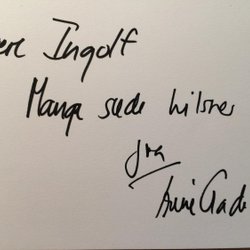 ere Ingolf
Mange søde hilsner
fra
Anne Gade